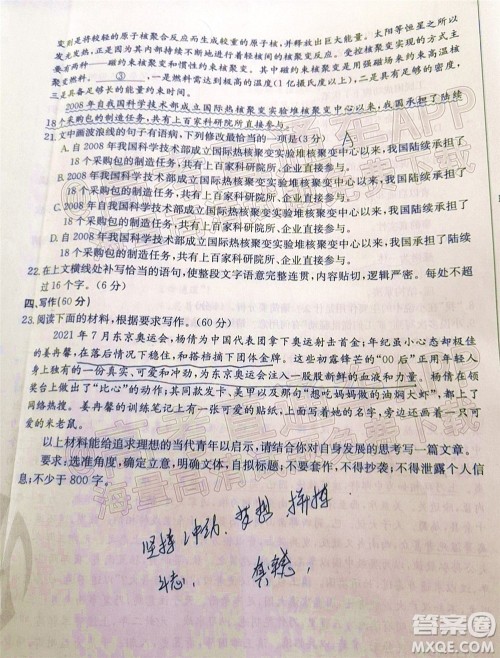 发则是将较轻的原子核聚合反应而生成较重的原子核,并释放出巨大能量。太阳等恒星之所以
发光发热,正是因为在其内部持续不断地进行着轻核间的核聚变反应。受控核聚变实现的主
要有两种——磁约束核聚变和惯性约束核聚变,
聚变燃料。 ③ ,一是燃料达到极高的温度(1亿摄氏度以上),二是
三是具备足够长的能量约束时间。
2008年自我国科学技术部成立国际热核聚变实验堆核聚变中心以来,我国陆续承担了
18个采购包的制造任务,共上百家科研院所、企业直接参与。
21.文中画波浪线的句子有语病,下列修改最恰当的一项是(3分) A
A.自2008年我国科学技术部成立国际热核聚变实验堆核聚变中心以来,我国陆续承担了
18个采购包的制造任务,共上百家科研院所、企业直接参与。
B.自2008年我国科学技术部成立国际热核聚变实验堆核聚变中心以来,我国陆续承担了
C.2008年自我国科学技术部成立国际热核聚变实验堆核聚变中心以来,我国陆续承担了
18个采购包的制造任务,共上百家科研院所、企业直接参与。
D.自2008年我国科学技术部成立国际热核聚变实验堆核聚变中心以来,我国承担了陆续
18个采购包的制造任务,共上百家科研院所、企业直接参与。
22.在上文横线处补写恰当的语句,使整段文字语意完整连贯,内容贴切,逻辑严密。每处不超
过16个字。(6分)
四、写作(60分)
23.阅读下面的材料,根据要求写作。(60分)
2021年7月东京奥运会,杨倩为中国代表团拿下奥运射击首金;年纪虽小心态却很大的
姜冉馨,在落后情况下稳住,和搭档摘下团体金牌。这些初露锋芒的“00后”正用年轻人
身上独有的一份真实、可爱和冲劲,为东京奥运会注入一股股新鲜的血液和力量。杨倩在领
奖台上做了“比心”的动作;其同款发卡、美甲以及那句“想吃妈妈做的油焖大虾”,都上了
网络热搜。姜冉馨的训练笔记上有一张可爱的贴纸,上面写着她的名字,旁边还画着一只可
爱的米老鼠。
以上材料能给追求理想的当代青年以启示,请结合你对自身发展的思考写一篇文章。
要求:选准角度,确定立意,明确文体,自拟标题;不要套作,不得抄袭;不得泄露个人信
息;不少于800字。
坚持 冲劲、梦想 拼搏
斗志、
答案圈
MXQE.COM